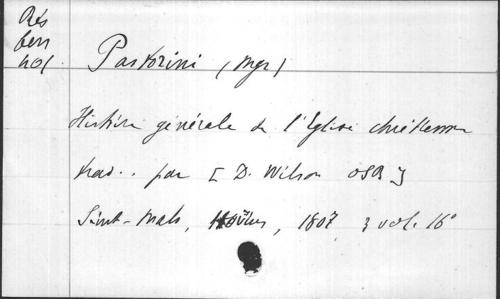 Rés
ben
not.
Pastorini (Mgr)
Histoire générale de l'Eglise chrétienne
trad.. par [D. Wilson OSB]
Saint-Malo, Hovius, 1807 3 vol. 16°